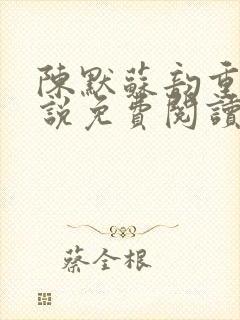 陳默蘇韵重
說免費閱讀
蔡全根